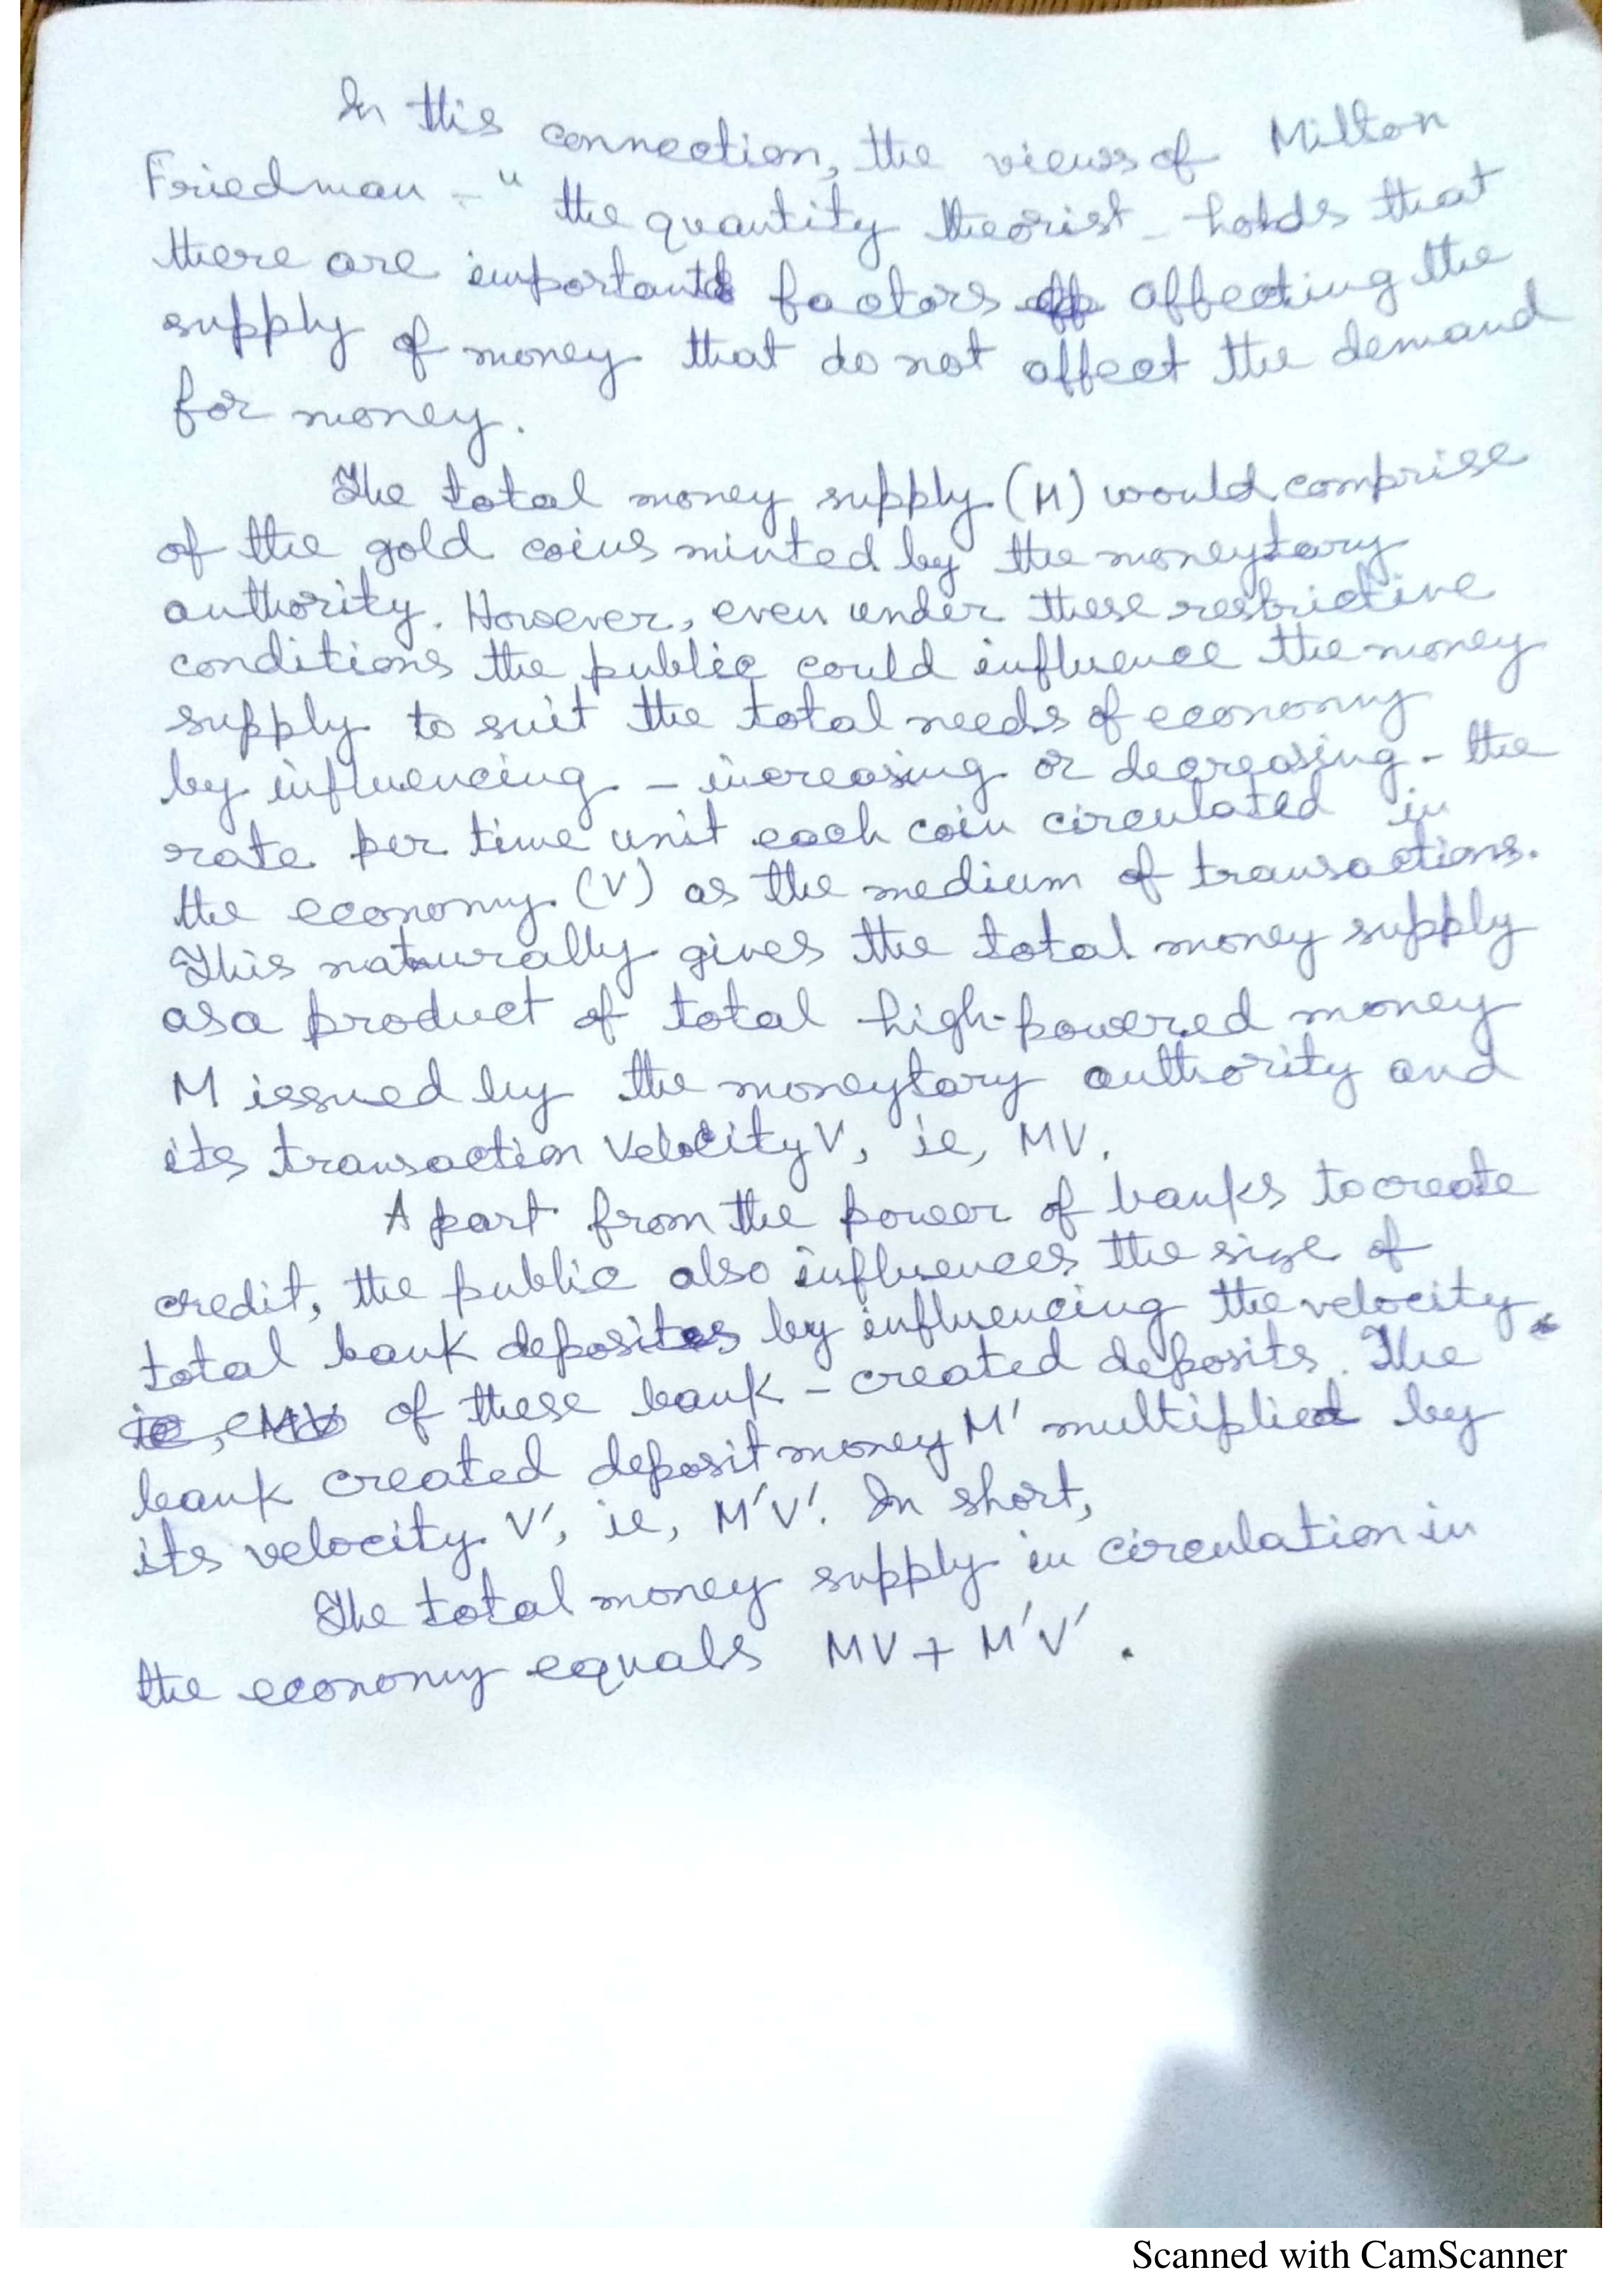 In this connection, the views of Milton
Friedman - " the quantity theorist - holds that
there are important factors affecting the
supply of money that do not affect the demand
for money.
The total money supply (M) would comprise
of the gold coins minted by the moneytary
authority. However, even under these restrictive
conditions the public could influence the money
supply to suit the total needs of economy
by influencing - increasing or decreasing - the
rate per time unit each coin circulated in
the economy (V) as the medium of transactions.
This naturally gives the total money supply
as a product of total high-powered money
M issued by the moneytary authority and
its transaction velocity V, ie, MV.
Apart from the power of banks to create
credit, the public also influences the size of
total bank deposits by influencing the velocity
of these bank - created deposits. The
bank created deposit money M' multiplied by
its velocity V', ie, M'V'. In short,
The total money supply in circulation in
the economy equals MV + M'V'.
Scanned with CamScanner